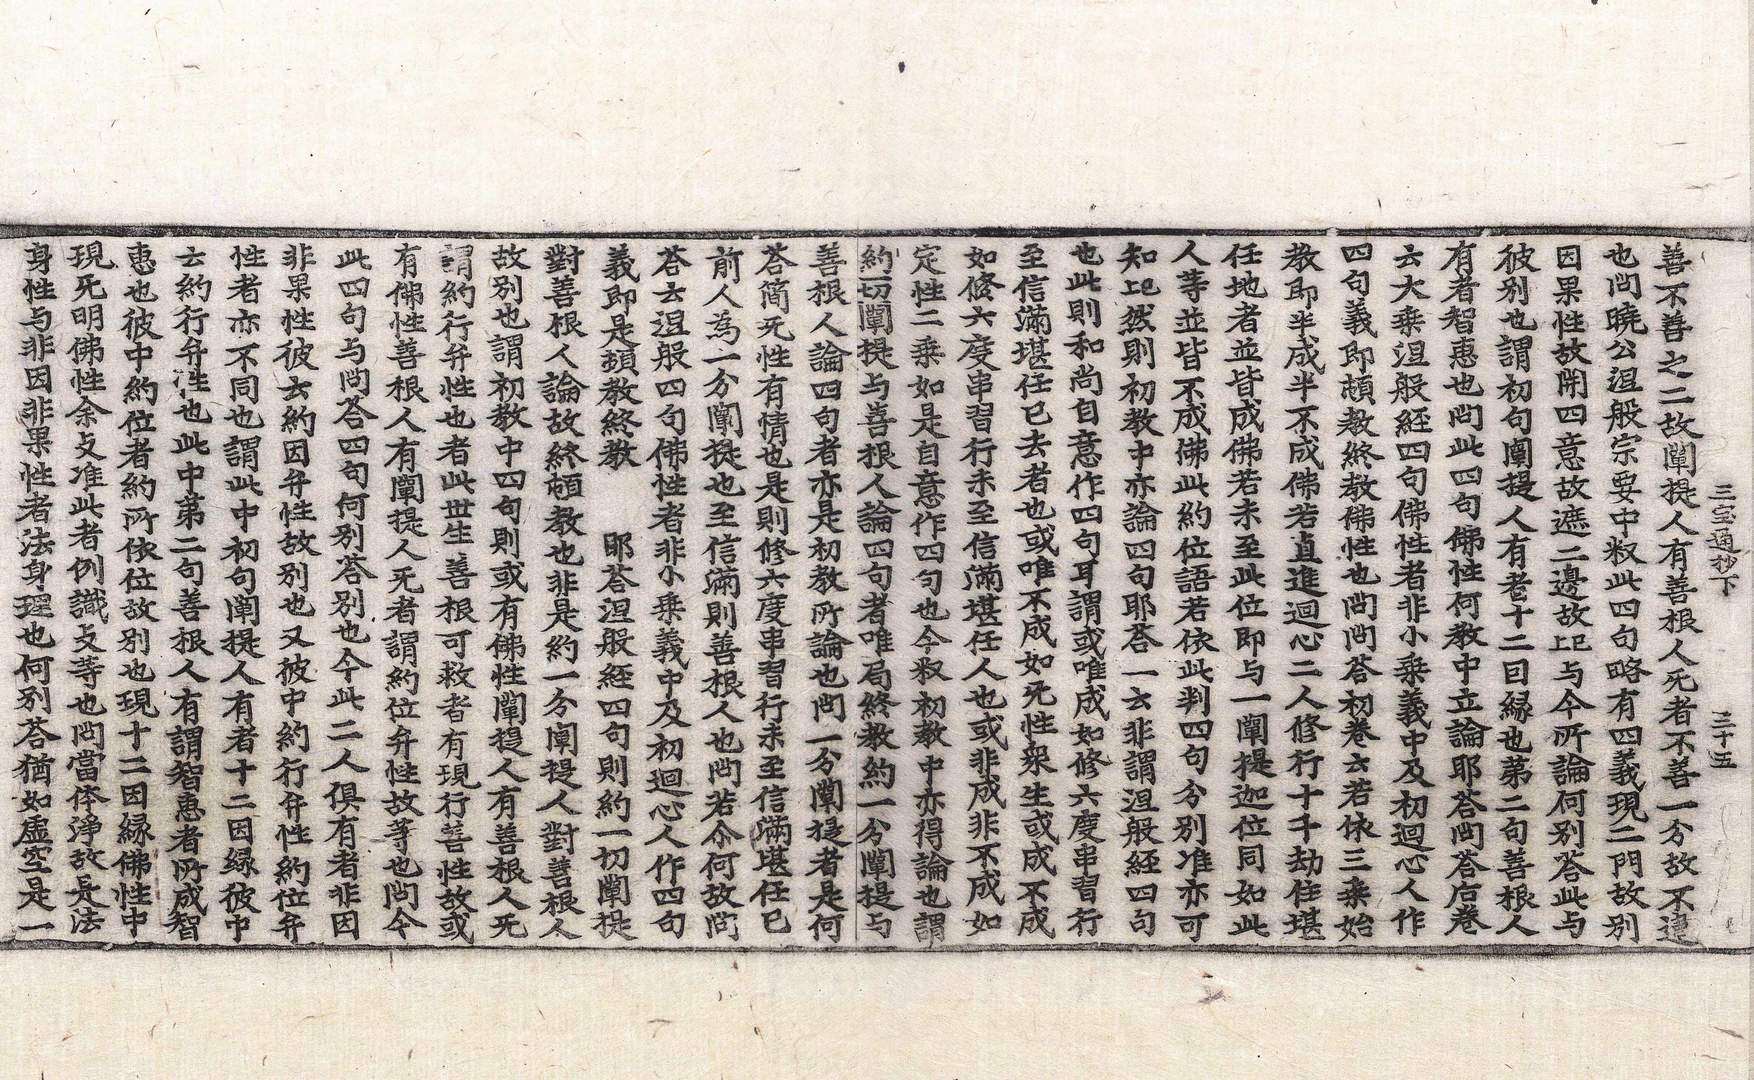 三宝通抄下　三十五
善不善之二故闡提人有善根人死者不善一分故不違
也問曉公涅般宗要中叔此四句略有四義現二門故別
因果性故開四意故遮二邊故記与今所論何別答此与
彼別也謂初句闡提人有者十二因縁也第二句善根人
有者智惠也問此四句佛性何教中立論耶答問答后卷
云大乗涅般經四句佛性者非小乗義中及初迴心人作
四句義即頓教終教佛性也問問答初卷云若依三乗始
教即半成半不成佛若直進迴心二人修行十千劫住堪
任地者並皆成佛若未至此位即与一闡提迦位同如此
人等並皆不成佛此約位語若依此判四句分別准亦可
知記然則初教中亦論四句耶答一云非謂涅般經四句
也此則和尚自意作四句耳謂或唯成如修六度串習行
至信滿堪任已去者也或唯不成如死性衆生或成不成
如修六度串習行未至信滿堪任人也或非成非不成如
定性二乗如是自意作四句也今叔初教中亦得論也謂
約一切闡提与善根人論四句者唯局終教約一分闡提与
善根人論四句者亦是初教所論也問一分闡提者是何
答簡死性有情也是則修六度串習行未至信滿堪任已
前人為一分闡提也至信滿則善根人也問若尒何故問
答云涅般四句佛性者非小乗義中及初迴心人作四句
義即是頓教終教　耶答涅般經四句則約一切闡提
對善根人論故終頓教也非是約一分闡提人對善根人
故別也謂初教中四句則或有佛性闡提人有善根人死
謂約行弁性也者此世生善根可救者有現行善性故或
有佛性善根人有闡提人死者謂約位弁性故等也問今
此四句与問答四句何別答別也今此二人俱有者非因
非果性彼云約因弁性故別也又彼中約行弁性約位弁
性者亦不同也謂此中初句闡提人有者十二因縁彼中
云約行弁性也此中第二句善根人有謂智惠者所成智
惠也彼中約位者約所依位故別也現十二因縁佛性中
現死明佛性余攴准此者例識攴等也問當侔淨故是法
身性与非因非果性者法身理也何別答猶如虛空是一